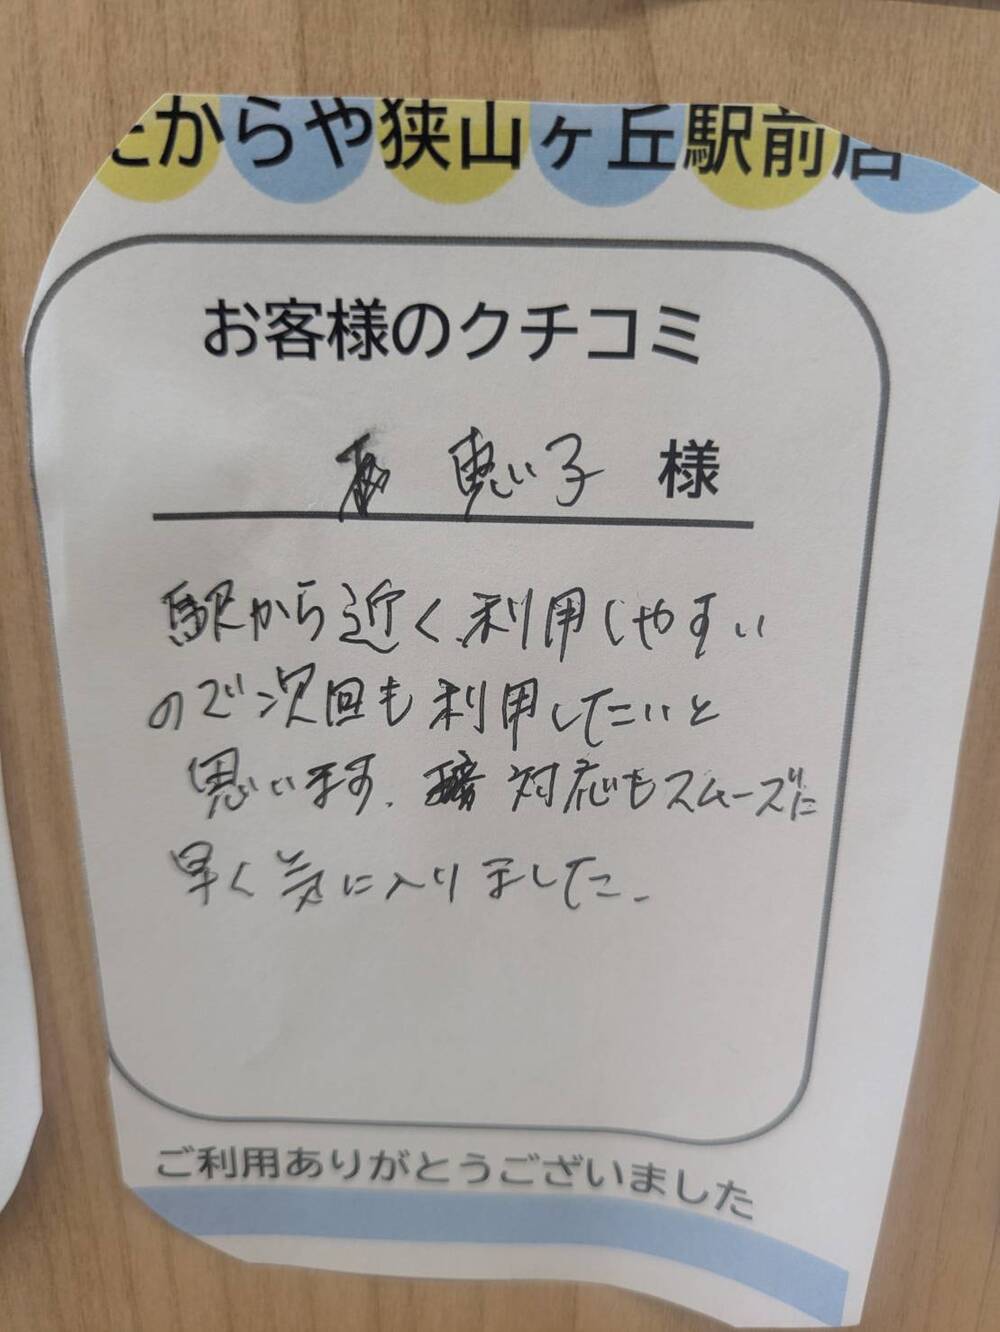 たからや狭山ヶ丘駅前店
お客様のクチコミ
恵子 様
駅から近く、利用しやすい
ので次回も利用したいと
思います。対応もスムーズに
早く気に入りました。
ご利用ありがとうございました